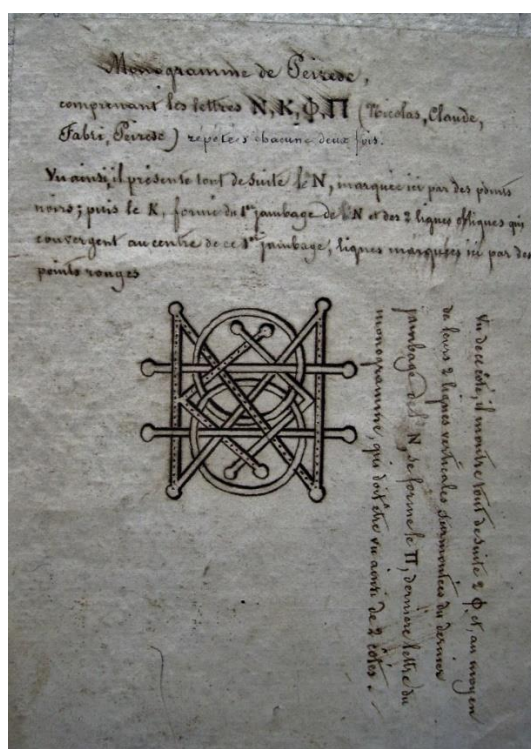 Monogramme de Peiresc,
comprenant les lettres N, K, Φ, Π (Nicolas, Claude,
Fabri, Peiresc) répétées chacune deux fois.
Vu ainsi, il présente tout de suite le N, marquée ici par des points
noirs; puis le K, formé du 1er jambage de l'N et des 2 lignes obliques qui
convergent au centre de ce 1er jambage, lignes marquées ici par des
points rouges
Vu de ce côté, il montre tout de suite 2 Φ et, au moyen
de leurs 2 lignes verticales surmontées du dernier
jambage de l'N, se forme le Π, dernière lettre du
monogramme, qui doit être vu ainsi de 2 côtés.